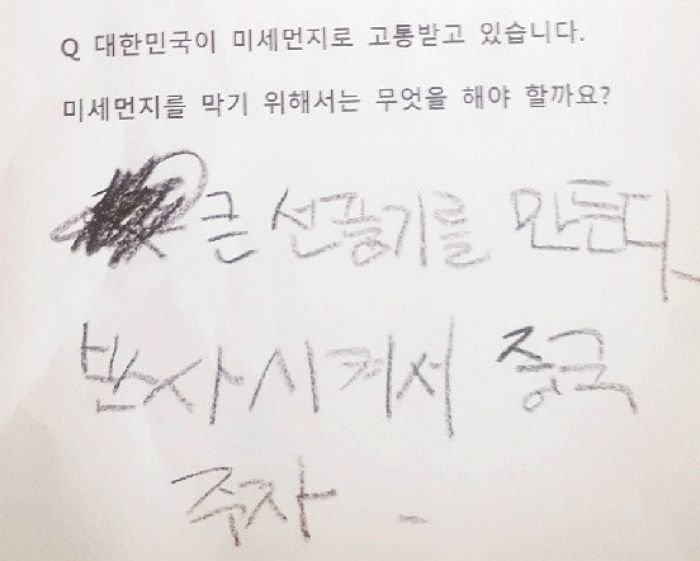 Q 대한민국이 미세먼지로 고통받고 있습니다.
미세먼지를 막기 위해서는 무엇을 해야 할까요?
큰 선풍기를 만든다.
반사시켜서 중국
주자.